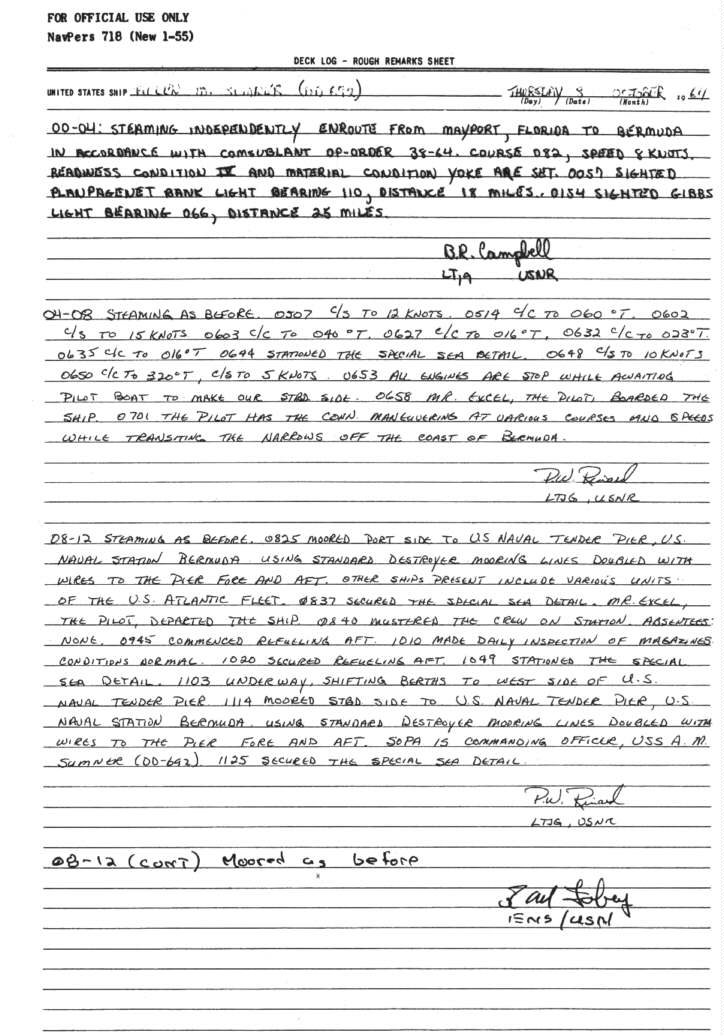 FOR OFFICIAL USE ONLY
NavPers 718 (New 1-55)
DECK LOG – ROUGH REMARKS SHEET
UNITED STATES SHIP (DD 692) THURSDAY 8 OCTOBER 19 64
(Day) (Date) (Month)
00-04: STEAMING INDEPENDENTLY ENROUTE FROM MAYPORT, FLORIDA TO BERMUDA
IN ACCORDANCE WITH COMSUBLANT OP-ORDER 38-64. COURSE 082, SPEED 8 KNOTS.
READINESS CONDITION IV AND MATERIAL CONDITION YOKE ARE SET. 0057 SIGHTED
PLANPAGENET BANK LIGHT BEARING 110, DISTANCE 18 MILES. 0154 SIGHTED GIBBS
LIGHT BEARING 066, DISTANCE 25 MILES.
B.R. Campbell
LTJG USNR
04-08 STEAMING AS BEFORE. 0507 C/S TO 12 KNOTS. 0514 C/C TO 060 °T. 0602
C/S TO 15 KNOTS 0603 C/C TO 040 °T. 0627 C/C TO 016°T, 0632 C/C TO 023°T.
0635 C/C TO 016°T 0644 STATIONED THE SPECIAL SEA DETAIL. 0648 C/S TO 10 KNOTS
0650 C/C TO 320°T, C/S TO 5 KNOTS. 0653 ALL ENGINES ARE STOP WHILE AWAITING
PILOT BOAT TO MAKE OUR STBD SIDE. 0658 MR. EXCEL, THE PILOT, BOARDED THE
SHIP. 0701 THE PILOT HAS THE CONN. MANEUVERING AT VARIOUS COURSES AND SPEEDS
WHILE TRANSITING THE NARROWS OFF THE COAST OF BERMUDA.
P.W.
LTJG, USNR
08-12 STEAMING AS BEFORE. 0825 MOORED PORT SIDE TO US NAVAL TENDER PIER, U.S.
NAVAL STATION BERMUDA USING STANDARD DESTROYER MOORING LINES DOUBLED WITH
WIRES TO THE PIER FORE AND AFT. OTHER SHIPS PRESENT INCLUDE VARIOUS UNITS
OF THE U.S. ATLANTIC FLEET. 0837 SECURED THE SPECIAL SEA DETAIL. MR. EXCEL,
THE PILOT, DEPARTED THE SHIP. 0840 MUSTERED THE CREW ON STATION. ABSENTEES:
NONE. 0945 COMMENCED REFUELING AFT. 1010 MADE DAILY INSPECTION OF MAGAZINES
CONDITIONS NORMAL. 1020 SECURED REFUELING AFT. 1049 STATIONED THE SPECIAL
SEA DETAIL. 1103 UNDERWAY, SHIFTING BERTHS TO WEST SIDE OF U.S.
NAVAL TENDER PIER 1114 MOORED STBD SIDE TO U.S. NAVAL TENDER PIER, U.S
NAVAL STATION BERMUDA. USING STANDARD DESTROYER MOORING LINES DOUBLED WITH
WIRES TO THE PIER FORE AND AFT. SOPA IS COMMANDING OFFICER, USS A. M.
SUMNER (DD-692) 1125 SECURED THE SPECIAL SEA DETAIL.
P.W.
LTJG, USNR
08-12 (CONT) Moored as before
ENS/USN